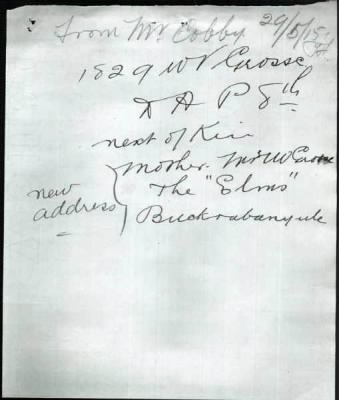 From Mr Cobby 29/5/15
1829 W V Grosse
D A P 8th
next of Kin
mother. Mrs W Grosse
new address
The "Elms"
Buckrabanyule